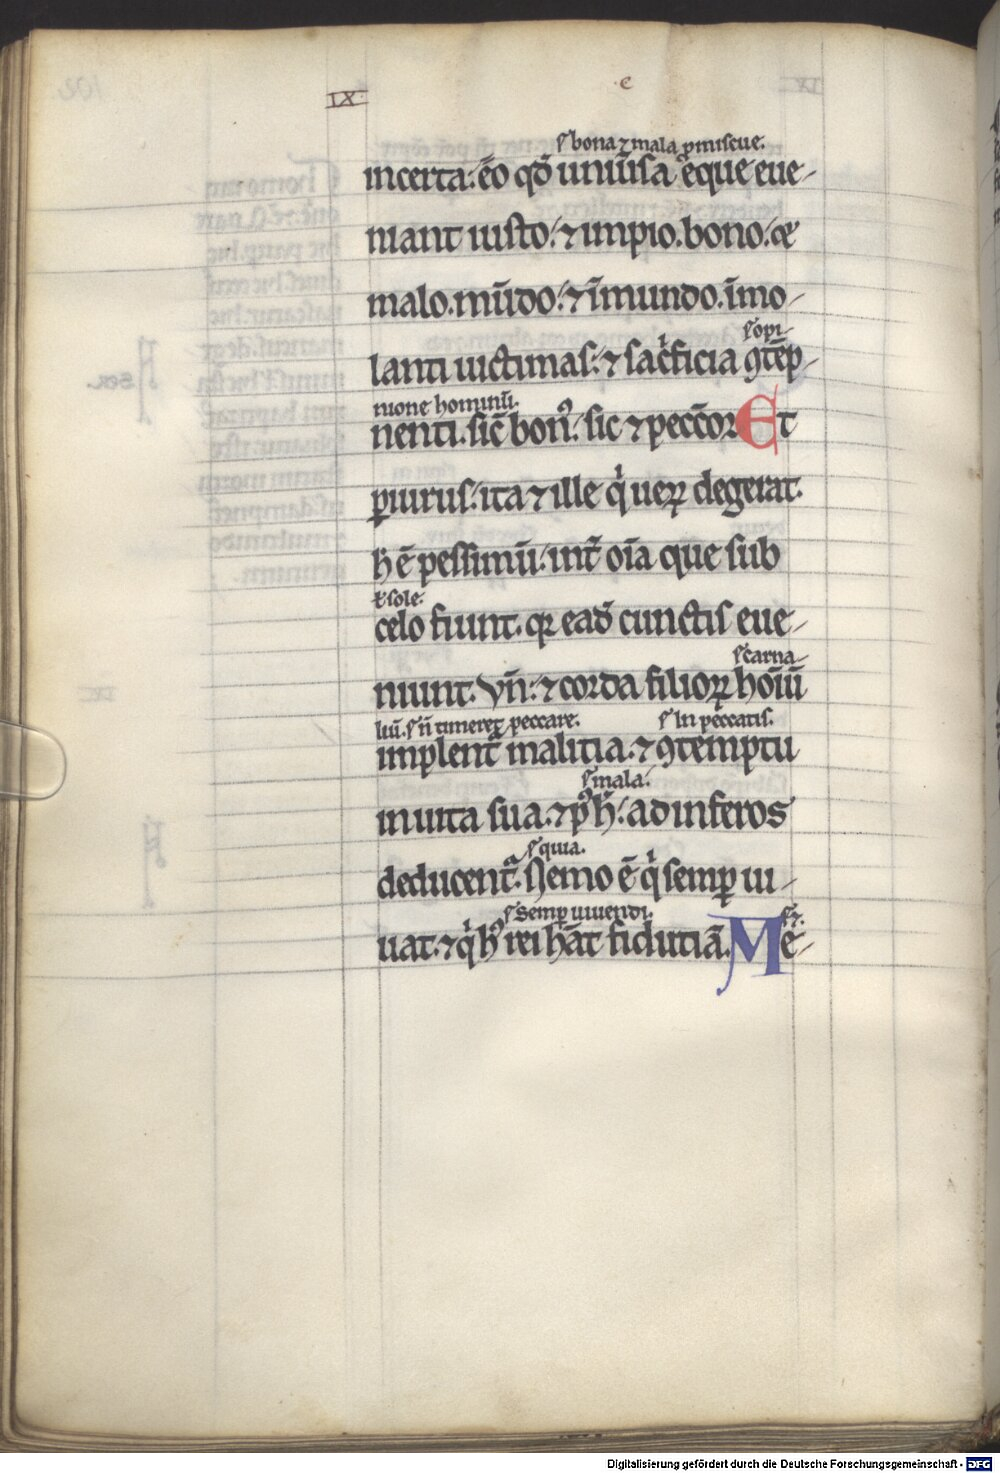 IX e
s. bona ⁊ mala ꝑmisceue.
incerta. ēo qd̄ uniũsa eque eue-
niant iusto. ⁊ impio. bono. ⁊
malo. mūdo. ⁊ īmundo. īmo-
s. opi-
lanti uictimas. ⁊ sac̄ficia ꝯtēp-
nione hominū.
nenti. sic̄ bonꝰ. sic ⁊ pecc̄or Et
ꝑiurus. ita ⁊ ille qͥ ueꝝ degerat.
h̄ ē pessimū. int̄ oīa que sub
ł sole.
celo fiunt. qꝛ ead̄ cunctis eue-
s. carna-
niunt. Vn̄. ⁊ corda filioꝝ hoīū
liū. s. n̄ timeret peccare. s. In peccatis.
implent̄ malitia. ⁊ ꝯtemptu
s. mala.
in uita sua. ⁊ pꝰ h̄. ad inferos
s. quia.
deducent̄. Nemo ē qͥ semꝑ ui-
s. Semꝑ uiuendi. s. ⁊.
uat. ⁊ qͥ hꝰ rei hāt fidutiā. Me-
Digitalisierung gefördert durch die Deutsche Forschungsgemeinschaft - DFG